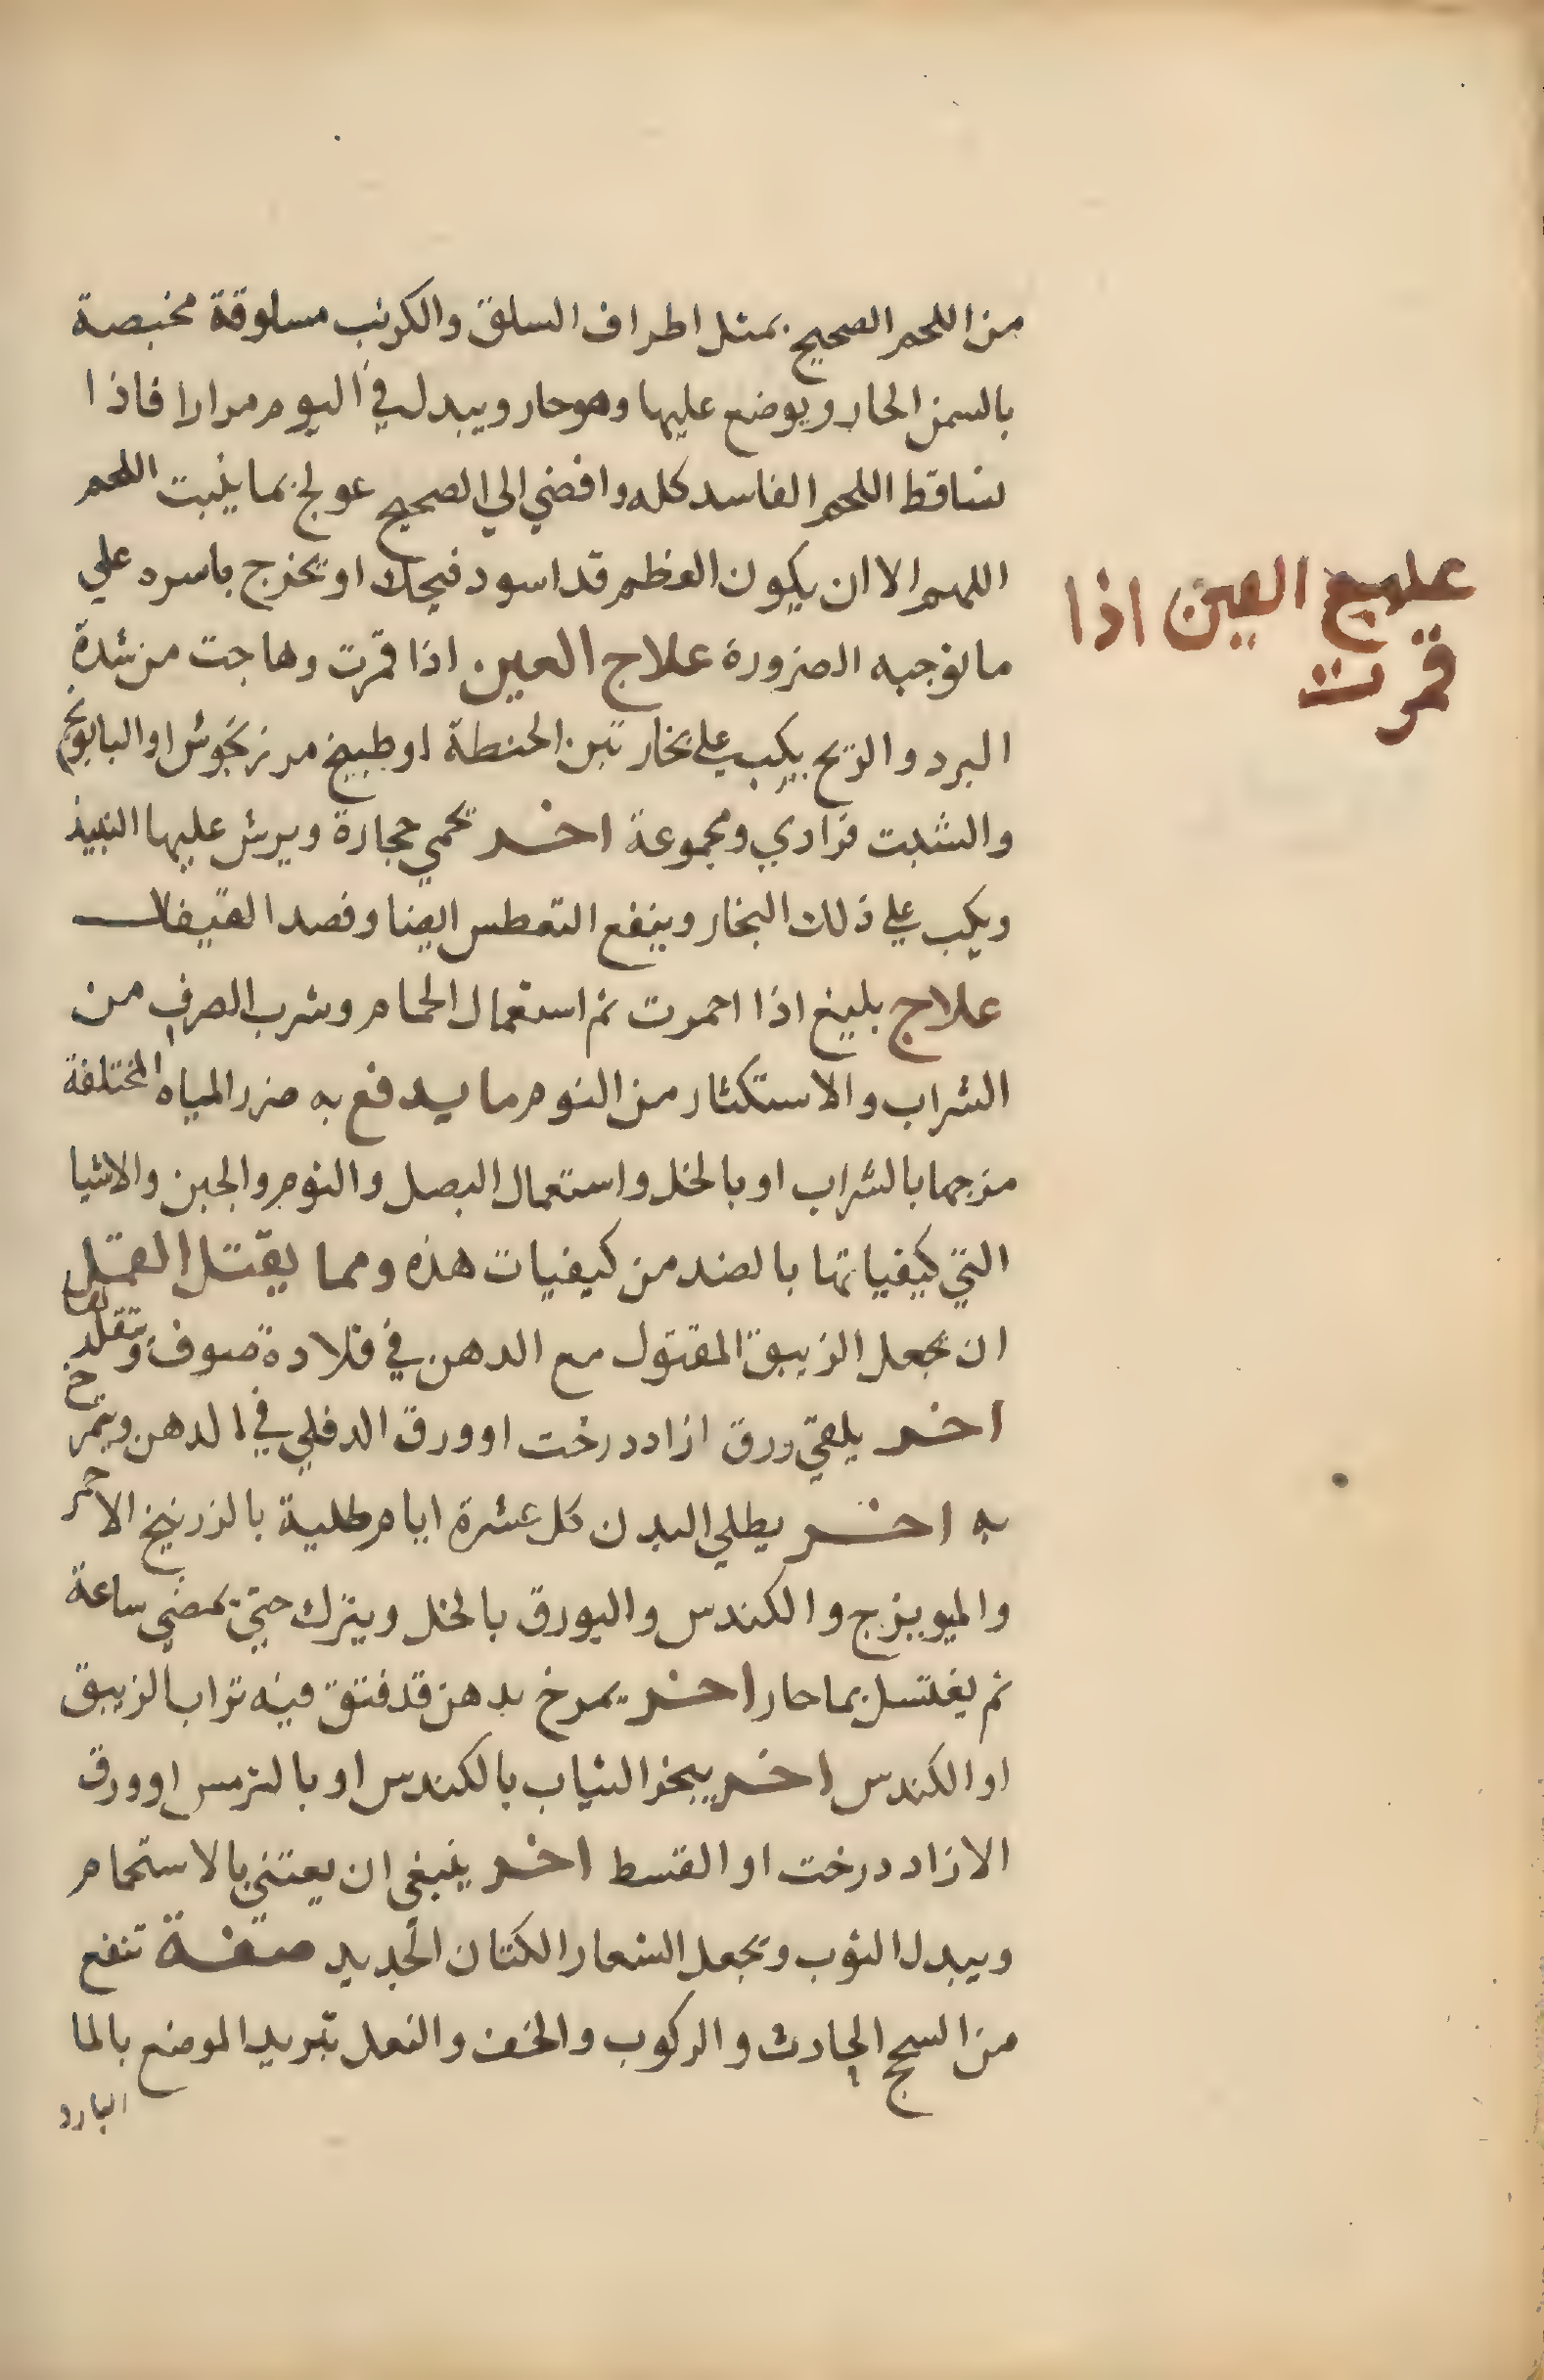 من اللحم الصحيح بمثل اطراف السلق والكرنب مسلوقة مخبصة
بالسمن الحار ويوضع عليها وهو حار ويبدل في اليوم مرارا فاذا
تساقط اللحم الفاسد كله وافضي الي الصحيح عولج بما ينبت اللحم
اللهم الا ان يكون العظم قد اسود فيحك او يخرج باسره علي
ما توجبه الضرورة علاج العين اذا قمرت وهاجت من شدة
علاج العين اذا
قمرت
البرد والريح يكب علي بخار تبن الحنطة او طبيخ مرزنجوش او البابونج
والشبت فرادي ومجموعة اخر تحمي حجارة ويرش عليها النبيذ
ويكب علي ذلك البخار وينفع التعطس ايضا وفصد القيفال
علاج بليغ اذا احمرت ثم استعمال الحمام وشرب الصرف من
الشراب والاستكثار من النوم ما يدفع به ضرر المياه المختلفة
مزجها بالشراب او بالخل واستعمال البصل والثوم والجبن والاشيا
التي كيفياتها بالضد من كيفيات هذه ومما يقتل القمل
ان يجعل الزيبق المقتول مع الدهن في قلادة صوف ويتقلد بها
اخر يلقي ورق ازاددرخت او ورق الدفلي في الدهن ويتمرخ
به اخر يطلي البدن كل عشرة ايام طلية بالزرنيخ الاحمر
والميويزج والكندس والبورق بالخل ويترك حتي يمضي ساعة
ثم يغتسل بما حار اخر يمرخ بدهن قد فتق فيه تراب الزيبق
او الكندس اخر يبخر الثياب بالكندس او بالترمس او ورق
الازاددرخت او القسط اخر ينبغي ان يعتني بالاستحمام
ويبدل الثوب ويجعل الشعار الكتان الجديد صفة تنفع
من السحج الحادث والركوب والخف والنعل تبريد الموضع بالما
البارد